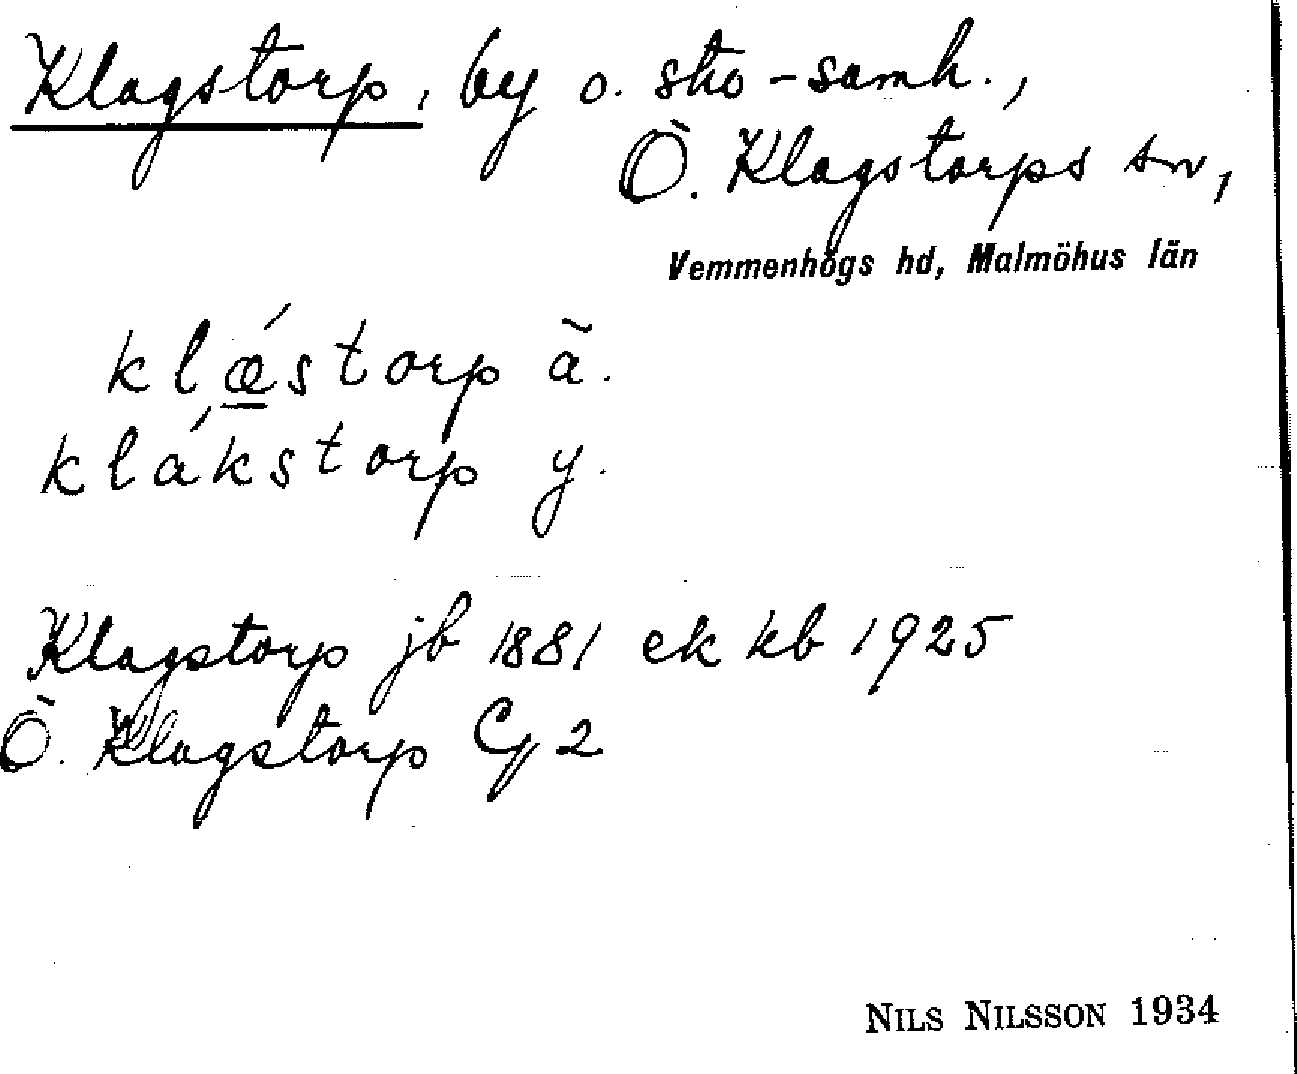 Klagstorp, by o. sko-samh.,
Ö. Klagstorps sn,
Vemmenhögs hd, Malmöhus län
klǽstorp ä.
klákstorp y.
Klagstorp jb 1881 ek kb 1925
Ö. Klagstorp Cg 2
NILS NILSSON 1934